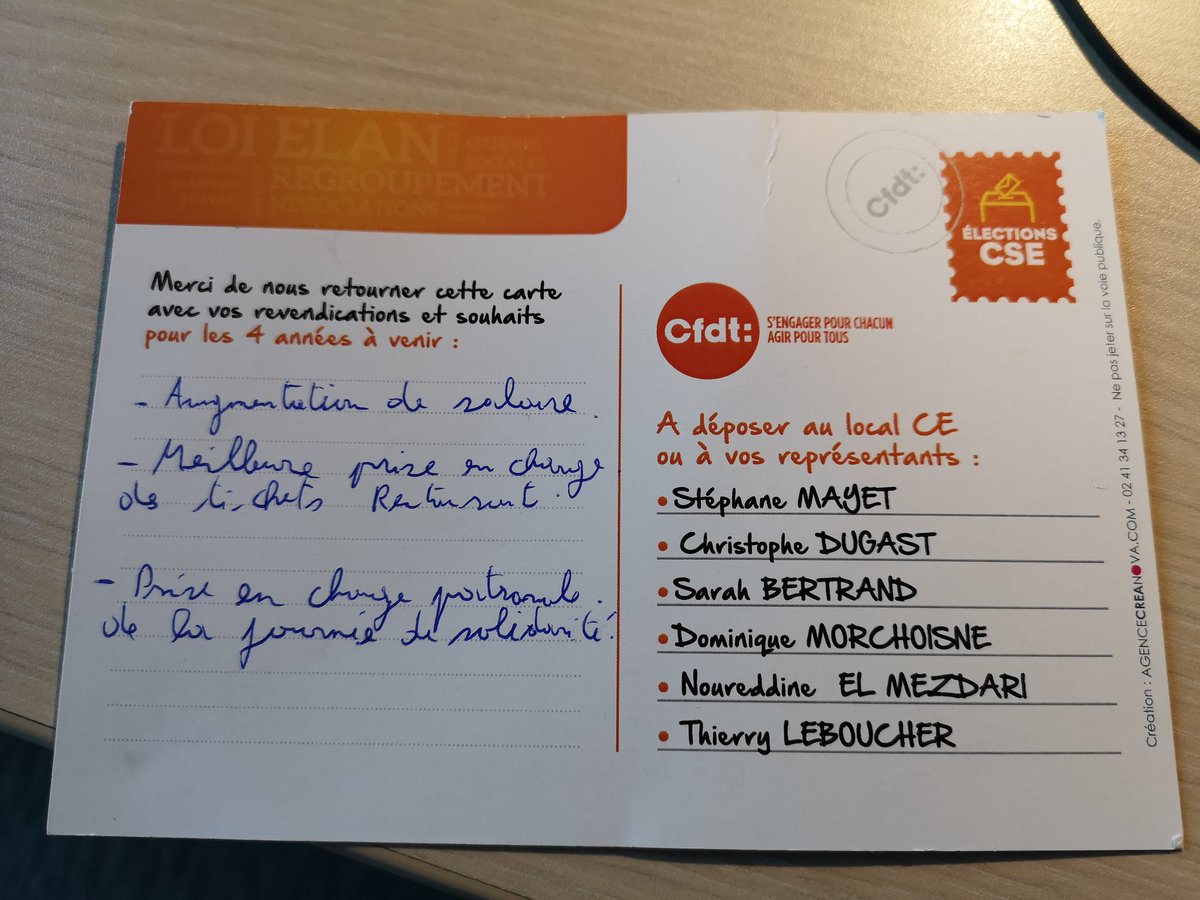 LOI ELAN
REGROUPEMENT
Merci de nous retourner cette carte
avec vos revendications et souhaits
pour les 4 années à venir :
- Augmentation de salaire.
- Meilleure prise en charge
de tickets Restaurant.
- Prise en charge patronale.
de la journée de solidarité.
Cfdt:
ÉLECTIONS
CSE
Cfdt:
S'ENGAGER POUR CHACUN
AGIR POUR TOUS
A déposer au local CE
ou à vos représentants :
• Stéphane MAYET
• Christophe DUGAST
• Sarah BERTRAND
• Dominique MORCHOISNE
• Noureddine EL MEZDARI
• Thierry LEBOUCHER
Création : AGENCECREANOVA.COM - 02 41 34 13 27 - Ne pas jeter sur la voie publique.